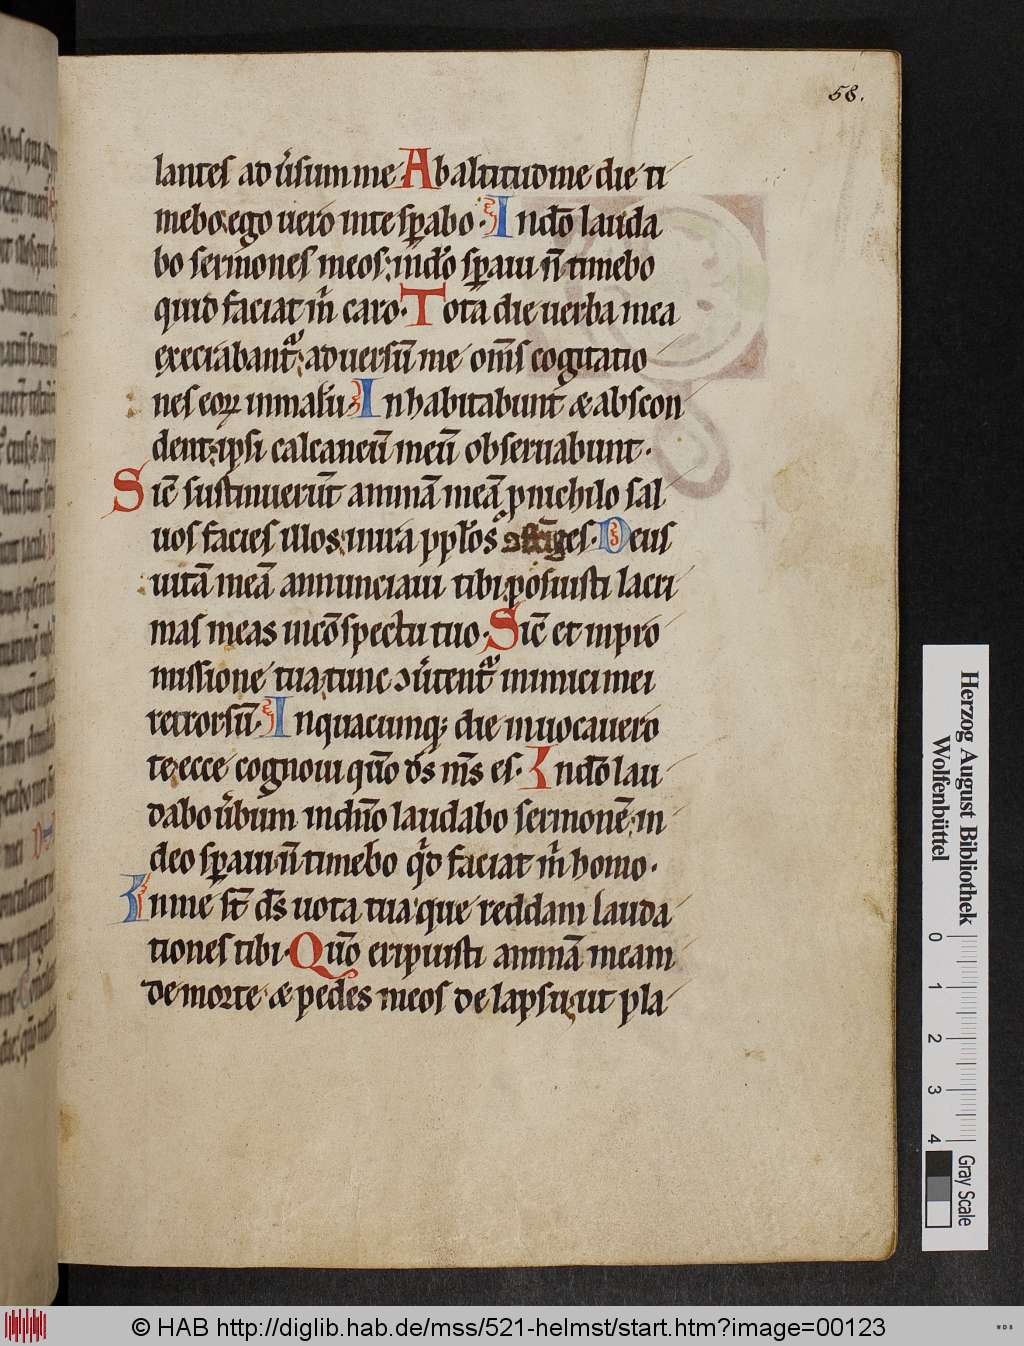 58.
lantes ad ūsum me· Ab altitudine diei ti
mebo: ego uero inte sꝑabo· In dō lauda
bo sermones meos: indō sꝑaui n̄ timebo
quid faciat m̄ caro· Tota die uerba mea
execrabant᷑: aduersū me om̄s cogitatio
nes eoꝝ inmalū· Inhabitabunt & abscon
dent: ipsi calcaneū meū obseruabunt·
Sic̄ sustinuerūt animā meā ꝓ nichilo sal
uos facies illos: inira ppl̄os ges· Deus
uitā meā annunciaui tibi: posuisti lacri
mas meas incōspectu tuo· Sic̄ et inpro
missione tua: tunc ↄūtent᷑ inimici mei
retrorsū· Inquacumq; die inuocauero
te: ecce cognoui qūo d̄s m̄s es· In dō lau
dabo ūbum indn̄o laudabo sermonē: in
deo sꝑaui n̄ timebo qd̄ faciat m̄ homo·
Inme st̄ d̄s uota tua: que reddam lauda
tiones tibi· Qūo eripuisti animā meam
de morte & pedes meos de lapsu: ut pla
Herzog August Bibliothek
Wolfenbüttel
0 1 2 3 4
Gray Scale
© HAB http://diglib.hab.de/mss/521-helmst/start.htm?image=00123